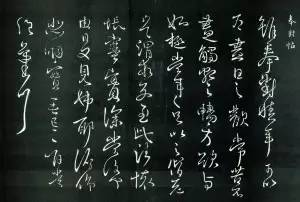 奉對帖
雖奉對積年可以
為盡日之歡常苦不
盡觸類之暢方欲與
姊極當年之疋以之偕老
豈謂乖別至此諸懷
悵塞實深當復何
由日夕見姊耶俯仰
悲咽實無已已惟當
絕氣耳